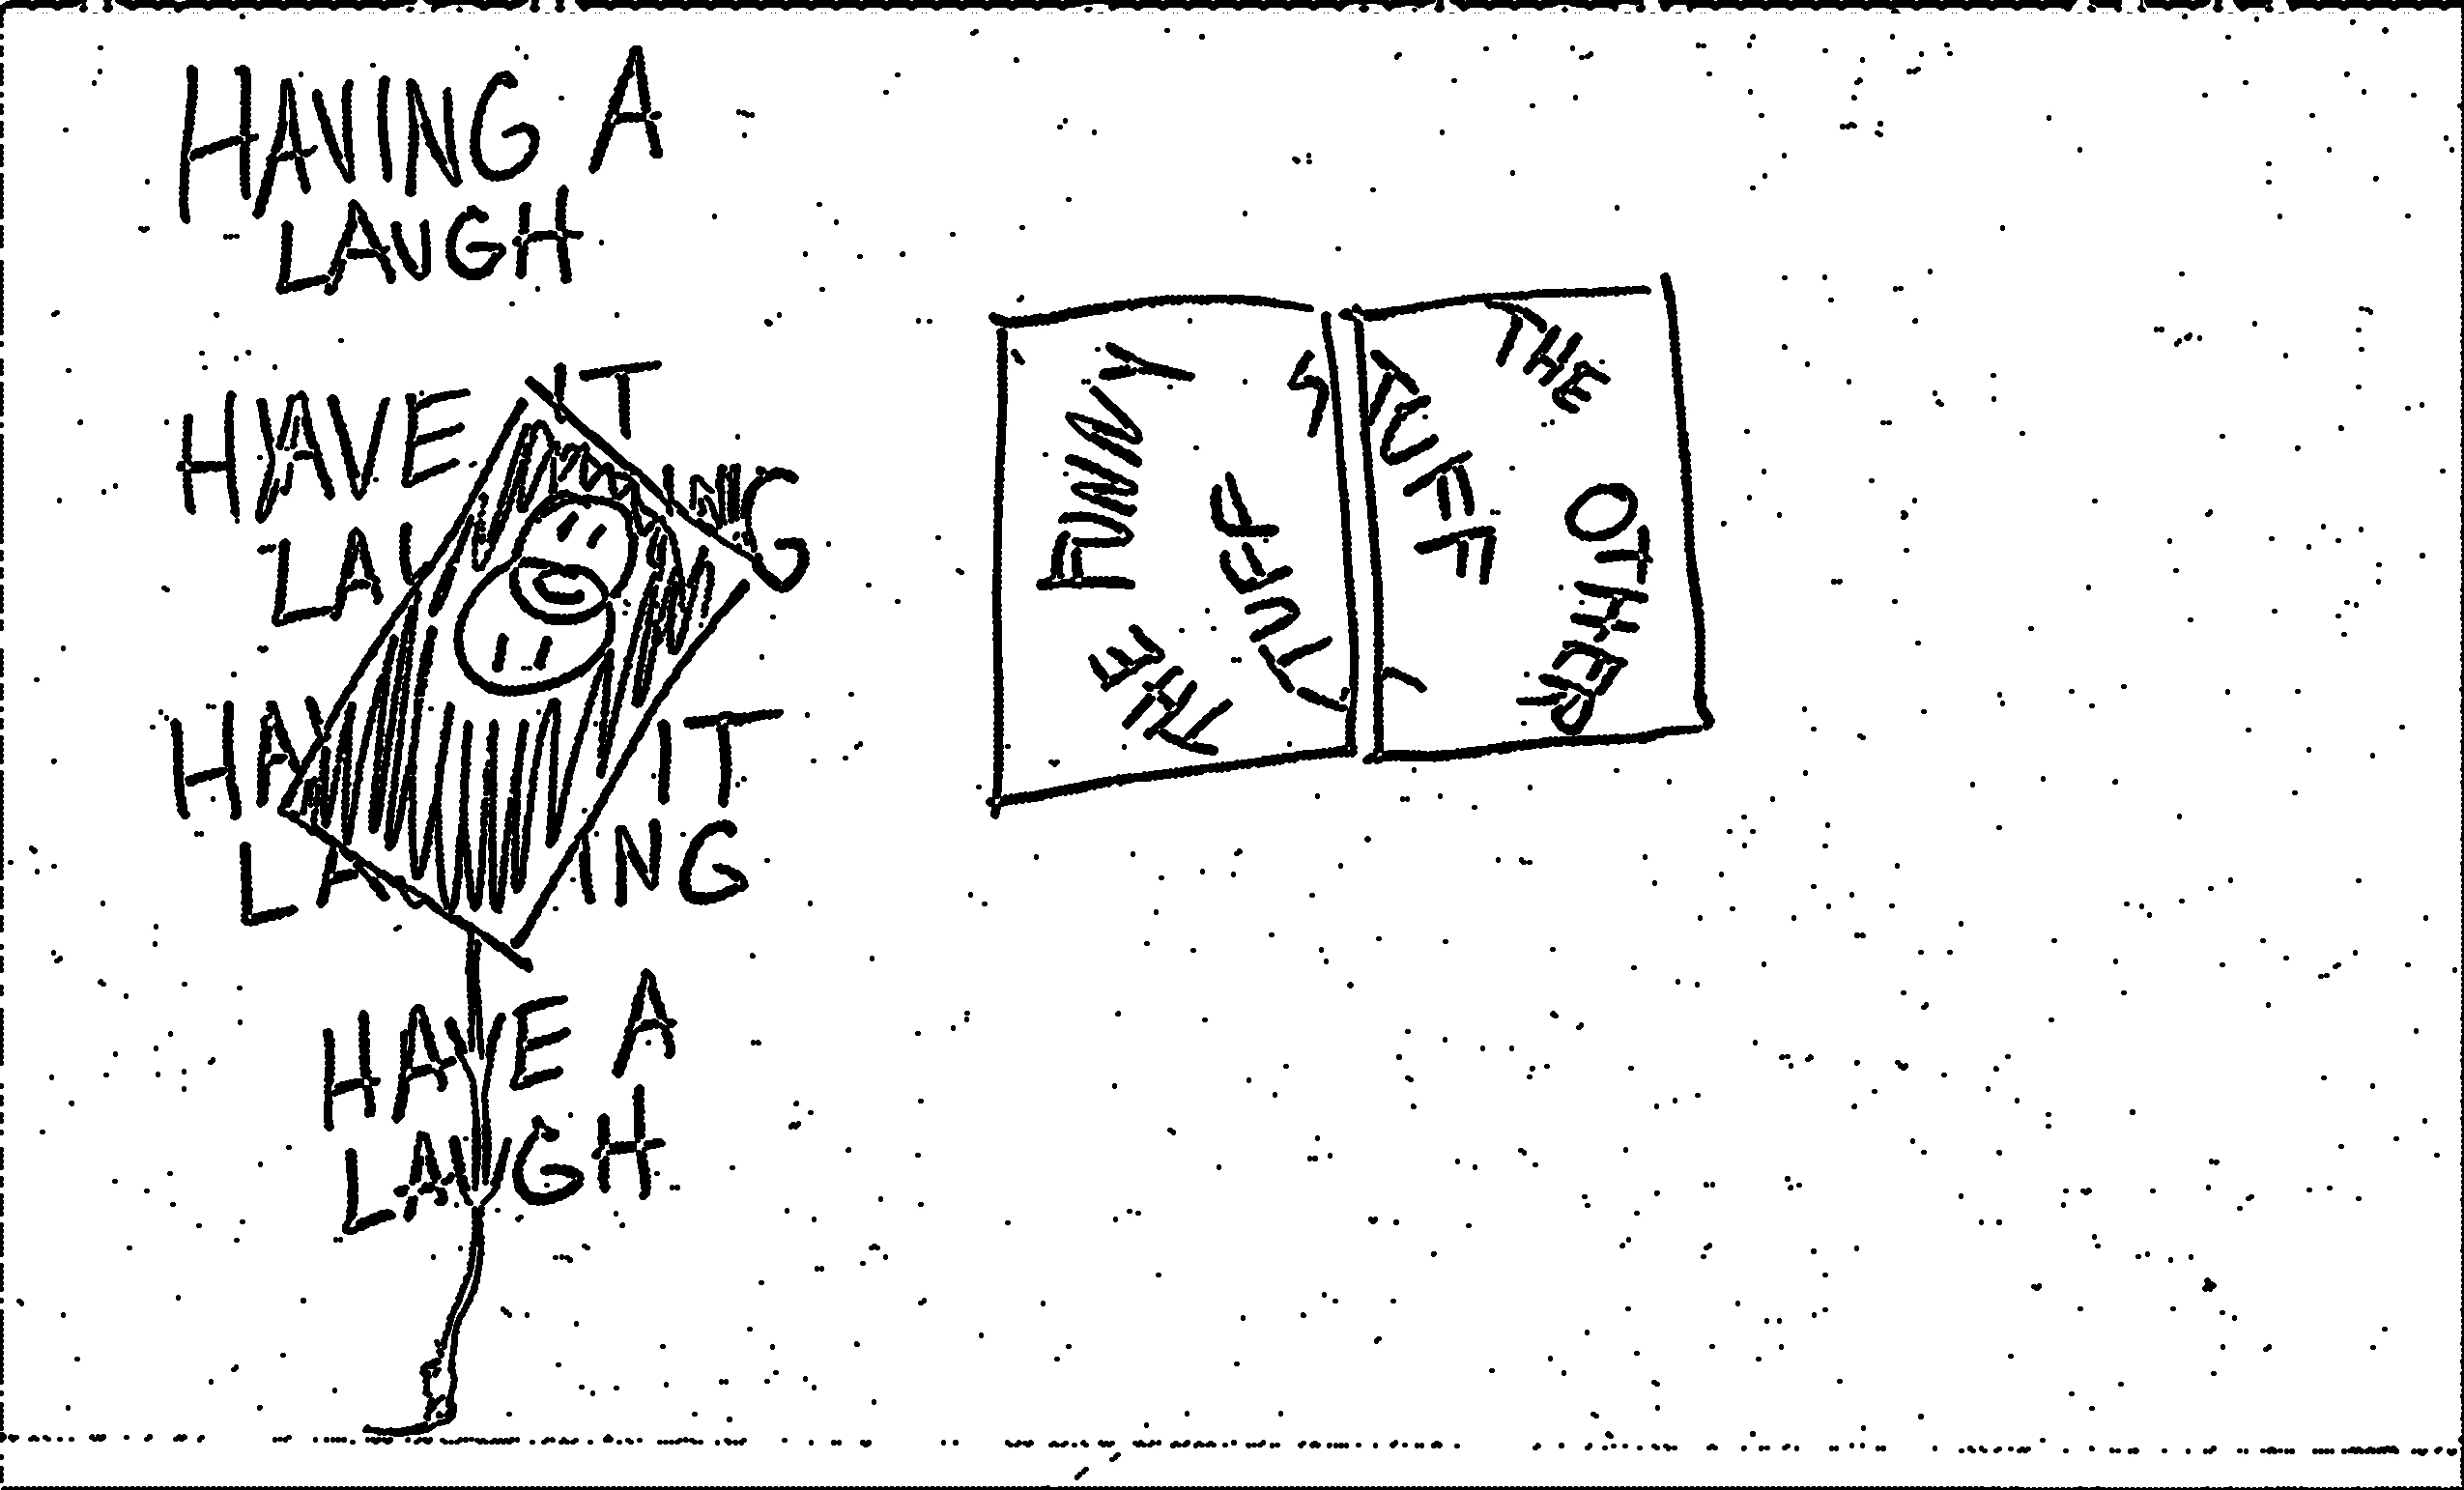 HAVING A
LAUGH
HAVE IT
LAU ING
HAV IT
LA ING
HAVE A
LAUGH
THE
FUNNY
STUFF
THE
OTHER
STUFF